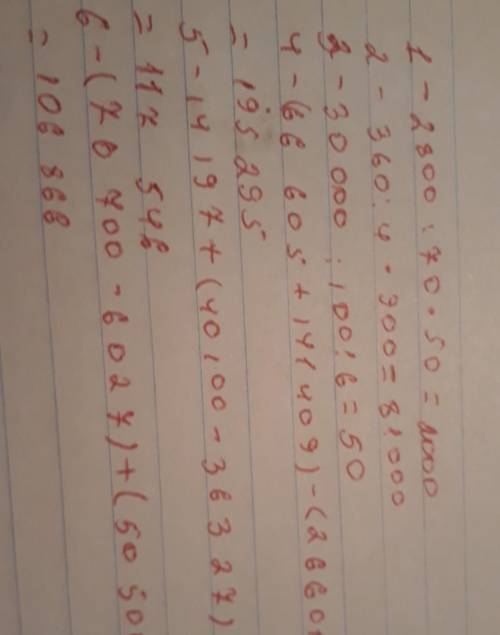 1 - 2800 : 70 · 50 = 2000
2 - 360 : 4 · 900 = 81000
3 - 30000 : 100 : 6 = 50
4 - (66 605 + 141409) - (2660
= 195 295
5 - 14197 + (40100 - 36327)
= 117 546
6 - (70 700 - 6027) + (50 50
= 106 866